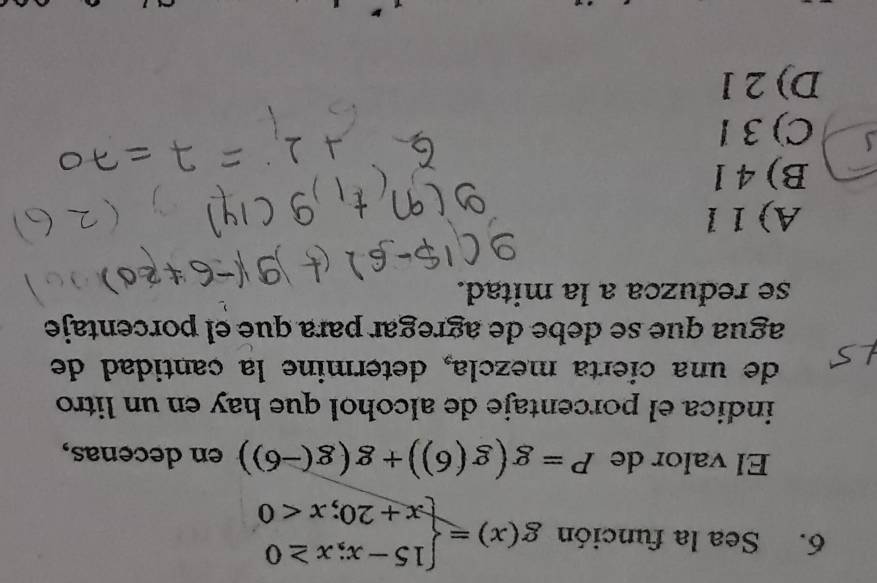 6. Sea la función g(x) = { 15 − x; x ≥ 0
x + 20; x < 0
El valor de P = g(g(6)) + g(g(−6)) en decenas,
indica el porcentaje de alcohol que hay en un litro
de una cierta mezcla, determine la cantidad de
agua que se debe de agregar para que el porcentaje
se reduzca a la mitad.
A) 1 l
B) 4 l
C) 3 l
D) 2 l
g(15-6) + g(-6+20)
g(9) + g(14)
6 + 1 = 7 = 70